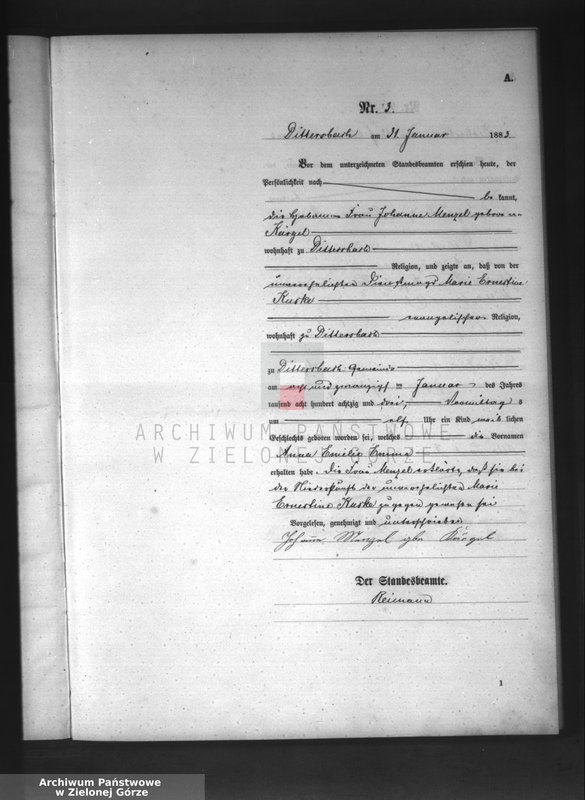 A.
Nr. 3.
Dittersbach am 31. Januar 1883.
Vor dem unterzeichneten Standesbeamten erschien heute, der
Persönlichkeit nach
be kannt,
die Hebamme Frau Johanne Menzel geborene
Kärgel
wohnhaft zu Dittersbach
Religion, und zeigte an, daß von der
unverehelichten Dienstmagd Marie Ernestine
Kuske
evangelischer Religion,
wohnhaft zu Dittersbach
zu Dittersbach Gemeinde
am acht und zwanzigsten Januar des Jahres
tausend acht hundert achtzig und drei, Vormittag s
um elf Uhr ein Kind weib lichen
Geschlechts geboren worden sei, welches die Vornamen
ARCHIWUM PAŃSTWOWE
W ZIELONEJ GÓRZE
Anna Emilie Emma
erhalten habe. Die Frau Menzel erklärte, daß sie bei
der Niederkunft der unverehelichten Marie
Ernestine Kuske zugegen gewesen sei.
Vorgelesen, genehmigt und unterschrieben
Johanne Menzel gbe Kärgel
Der Standesbeamte.
Reimann
1
Archiwum Państwowe
w Zielonej Górze